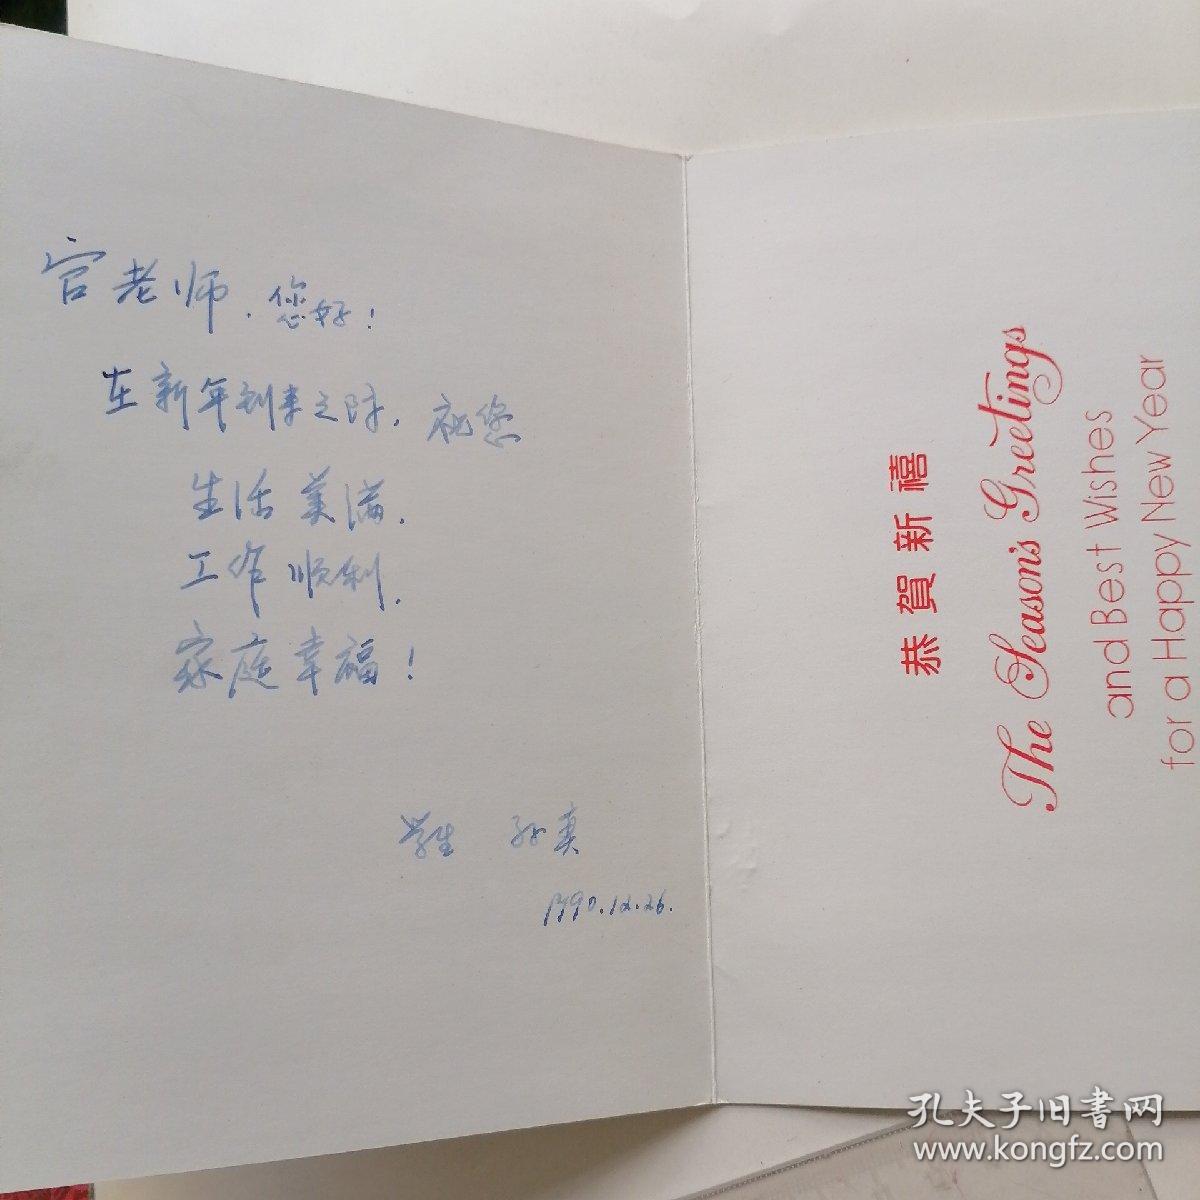 官老师.您好!
在新年到来之际,祝您
生活美满.
工作顺利.
家庭幸福!
学生 孙爽
1990.12.26.
恭賀新禧
The Season's Greetings
and Best Wishes
for a Happy New Year
孔夫子旧书网
www.kongfz.com